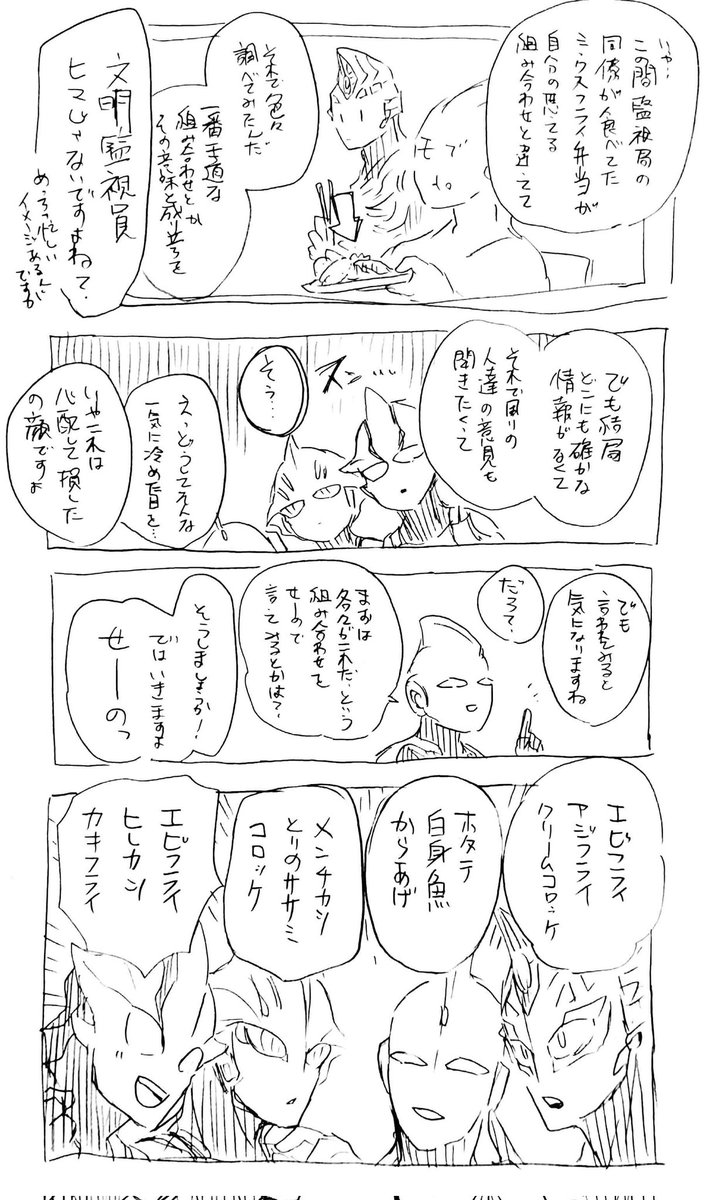 いや…
この間監視局の
同僚が食べてた
ミックスフライ弁当が
自分の思ってる
組み合わせと違ってて
モブ
それで色々
調べてみたんだ
一番王道な
組み合わせとか
その意味と成り立ちを
文明監視員
ヒマじゃないですよねって。
めっちゃ忙しい
イメージあるんで
すが
でも結局
どこにも確かな
情報がなくて
それで周りの
人達の意見も
聞きたくって
スン…
そう…
えっどうしてそんな
一気に冷めた目を…
いやこれは
心配して損した
の顔ですよ
でも
言われてみると
気になりますね
だろ?
まずは
各々がこれだ、という
組み合わせを
せーので
言ってみるとかは?
そうしましょうか!
ではいきますよ
せーのっ
エビフライ
アジフライ
クリームコロッケ
ホタテ
白身魚
からあげ
メンチカツ
とりのササミ
コロッケ
エビフライ
ヒレカツ
カキフライ